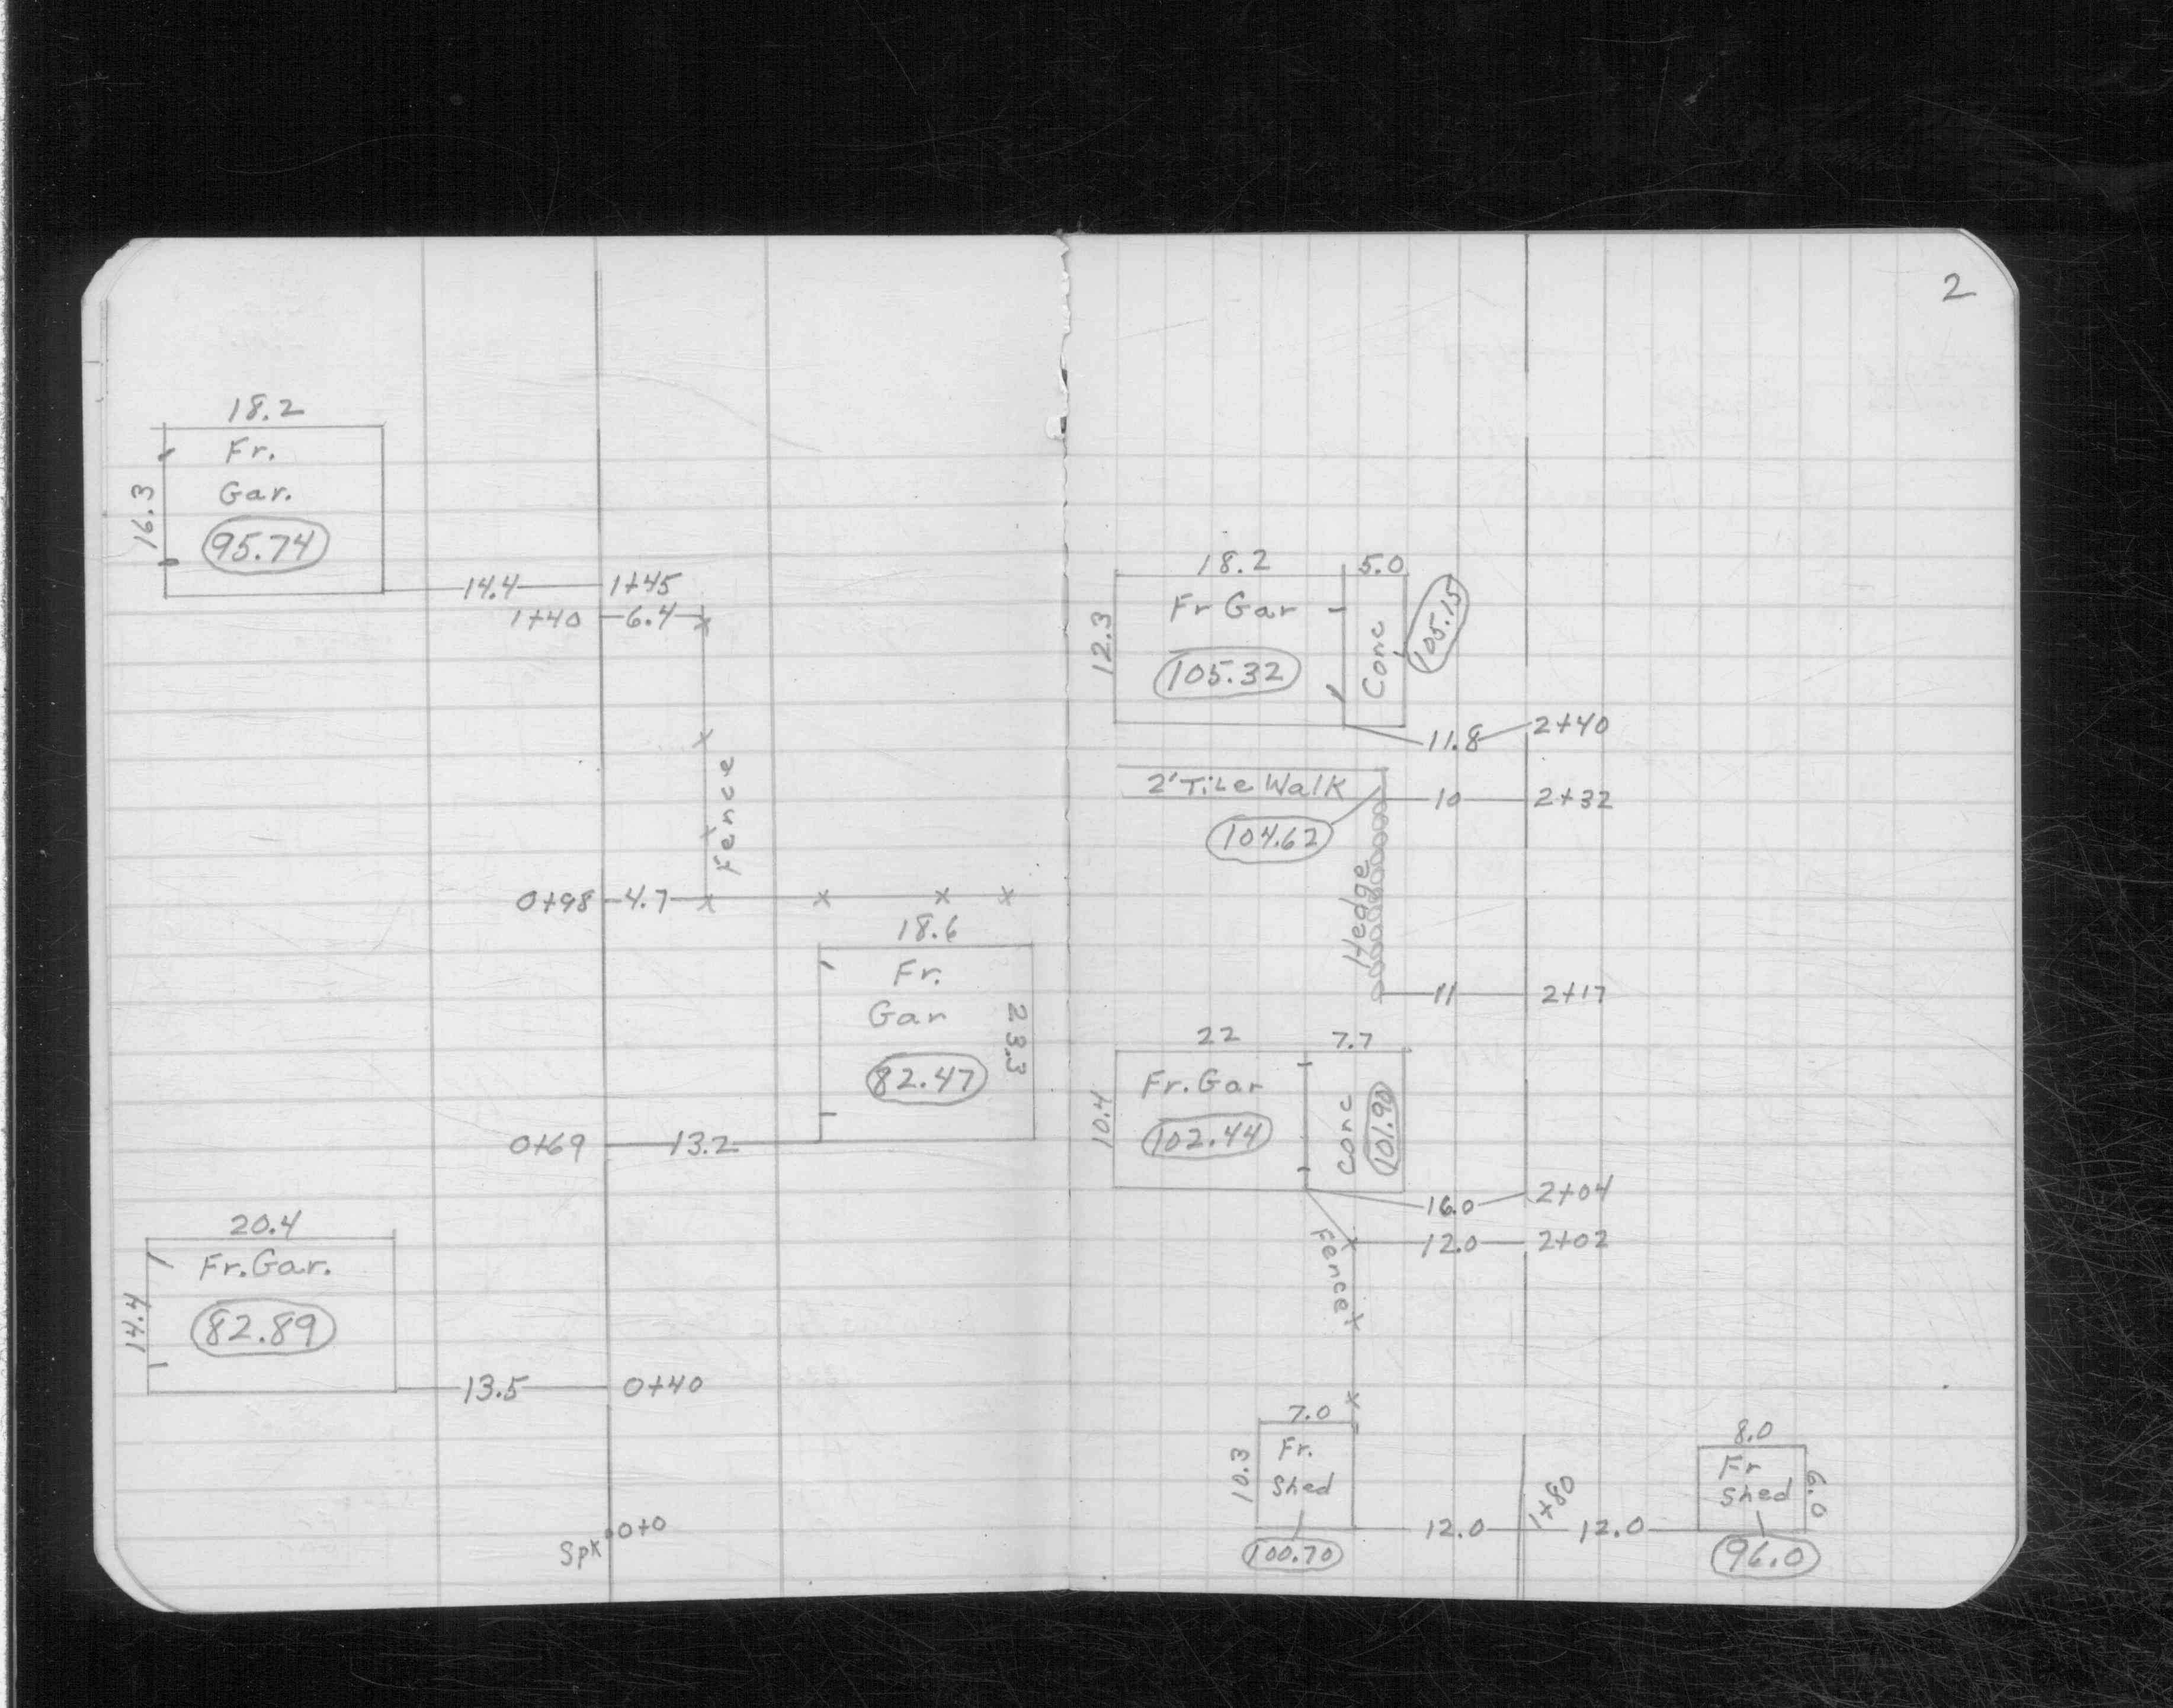 18.2
Fr.
Gar.
16.3
95.74
14.4 1+45
1+40 6.4
Fence
0+98 4.7
18.6
Fr.
Gar
23.3
82.47
0+69 13.2
20.4
Fr. Gar.
14.4
82.89
13.5 0+40
0+0
Spk
2
18.2 5.0
Fr Gar
12.3
105.32
Conc
105.15
11.8 2+40
2' Tile Walk
10 2+32
104.62
Hedge
11 2+17
22 7.7
Fr. Gar
10.4
102.44
Conc
101.90
16.0 2+04
12.0 2+02
Fence
7.0
Fr.
Shed
10.3
100.70
12.0 1+80 12.0
8.0
Fr
Shed
6.0
96.0